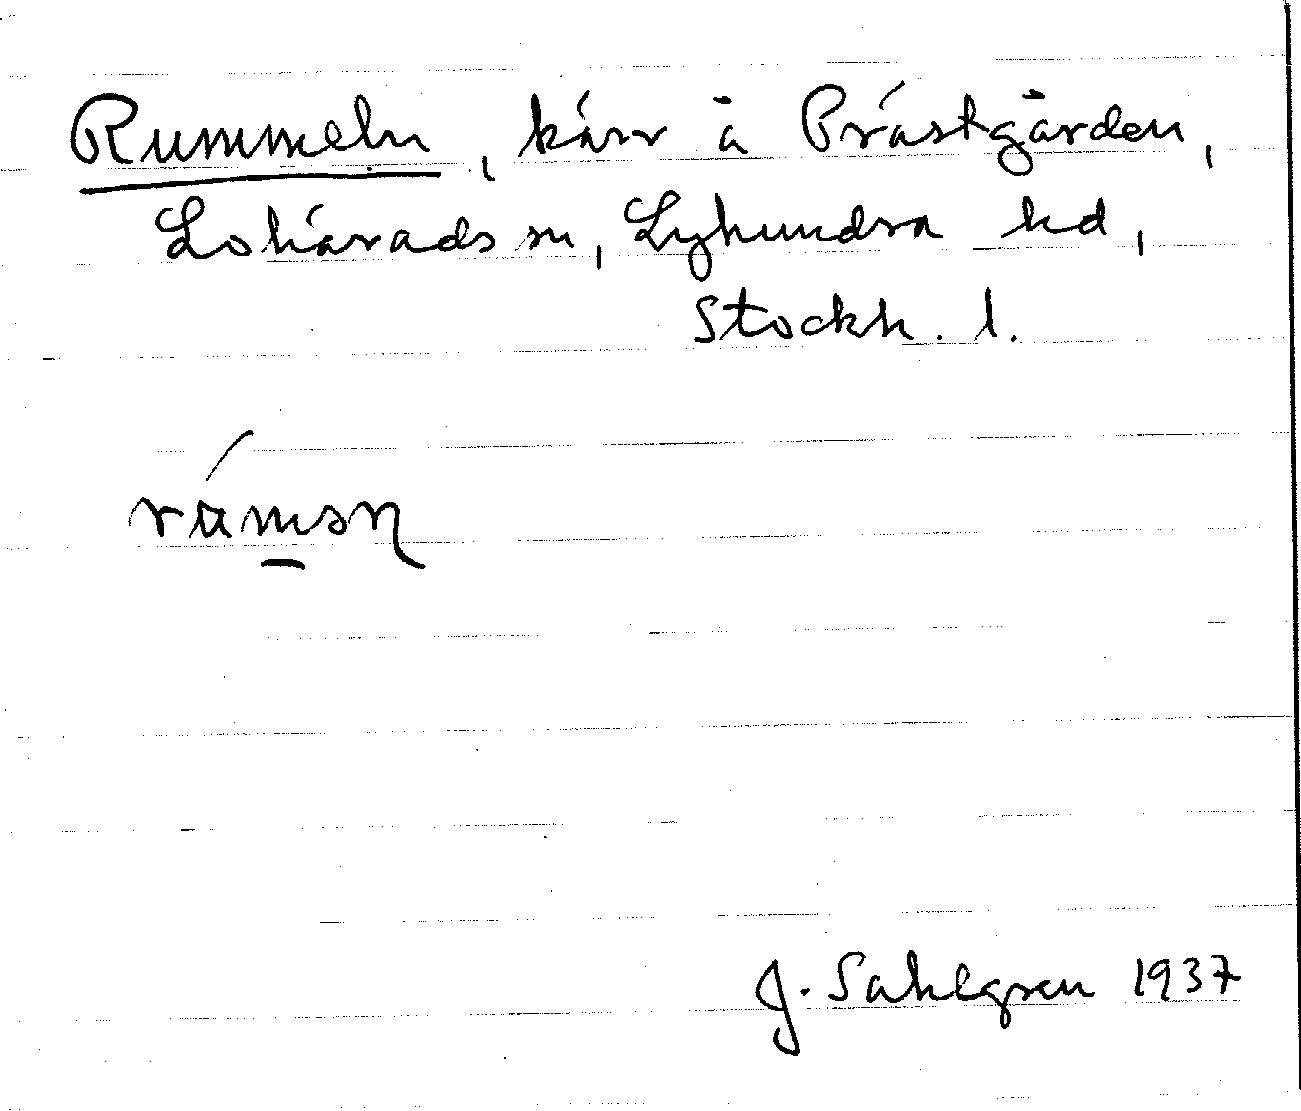 Rummeln, kärr å Prästgården,
Lohärads sn, Lyhundra hd,
Stockh. l.
rúm̲əɳ
J. Sahlgren 1937